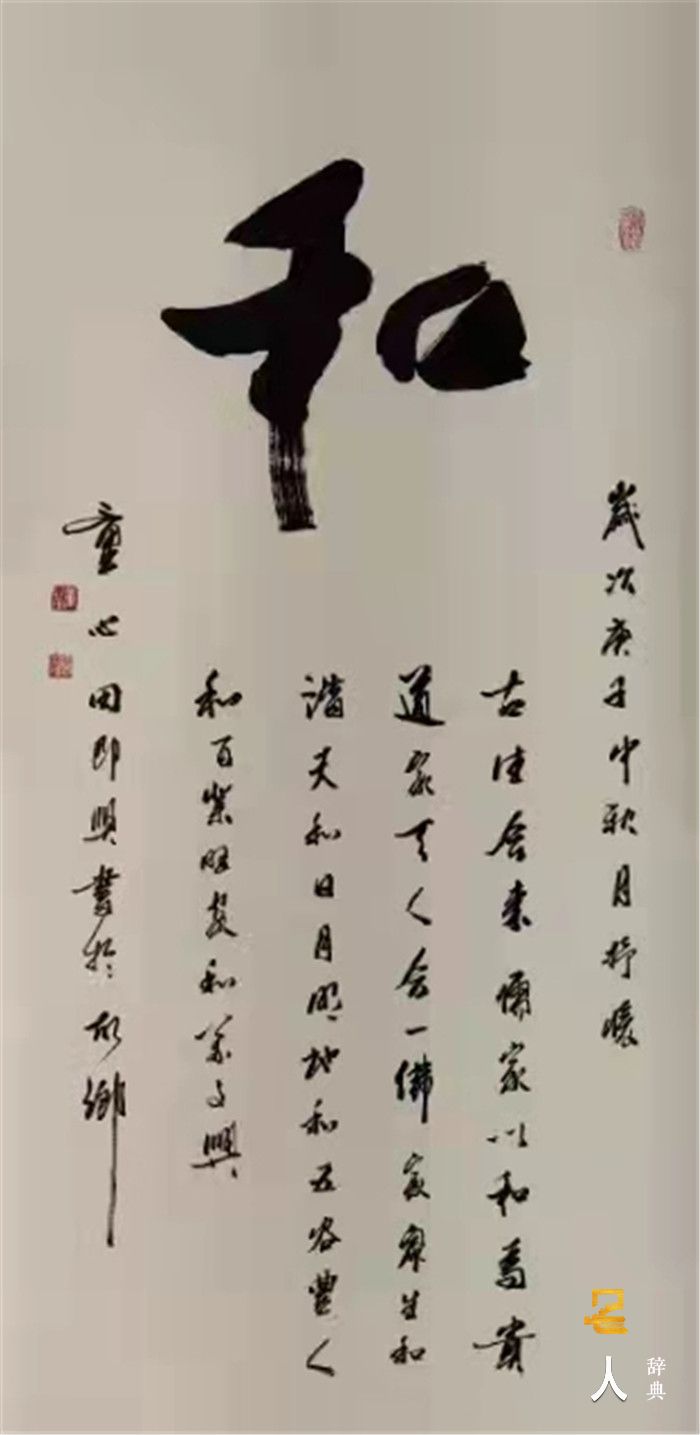 和
歲次庚子中秋月抒懷
古往今來儒家以和為貴
道家天人合一佛家眾生和
諧天和日月明地和五谷豐人
和百業旺家和萬事興
童心田即興書於故鄉
名人
辞典